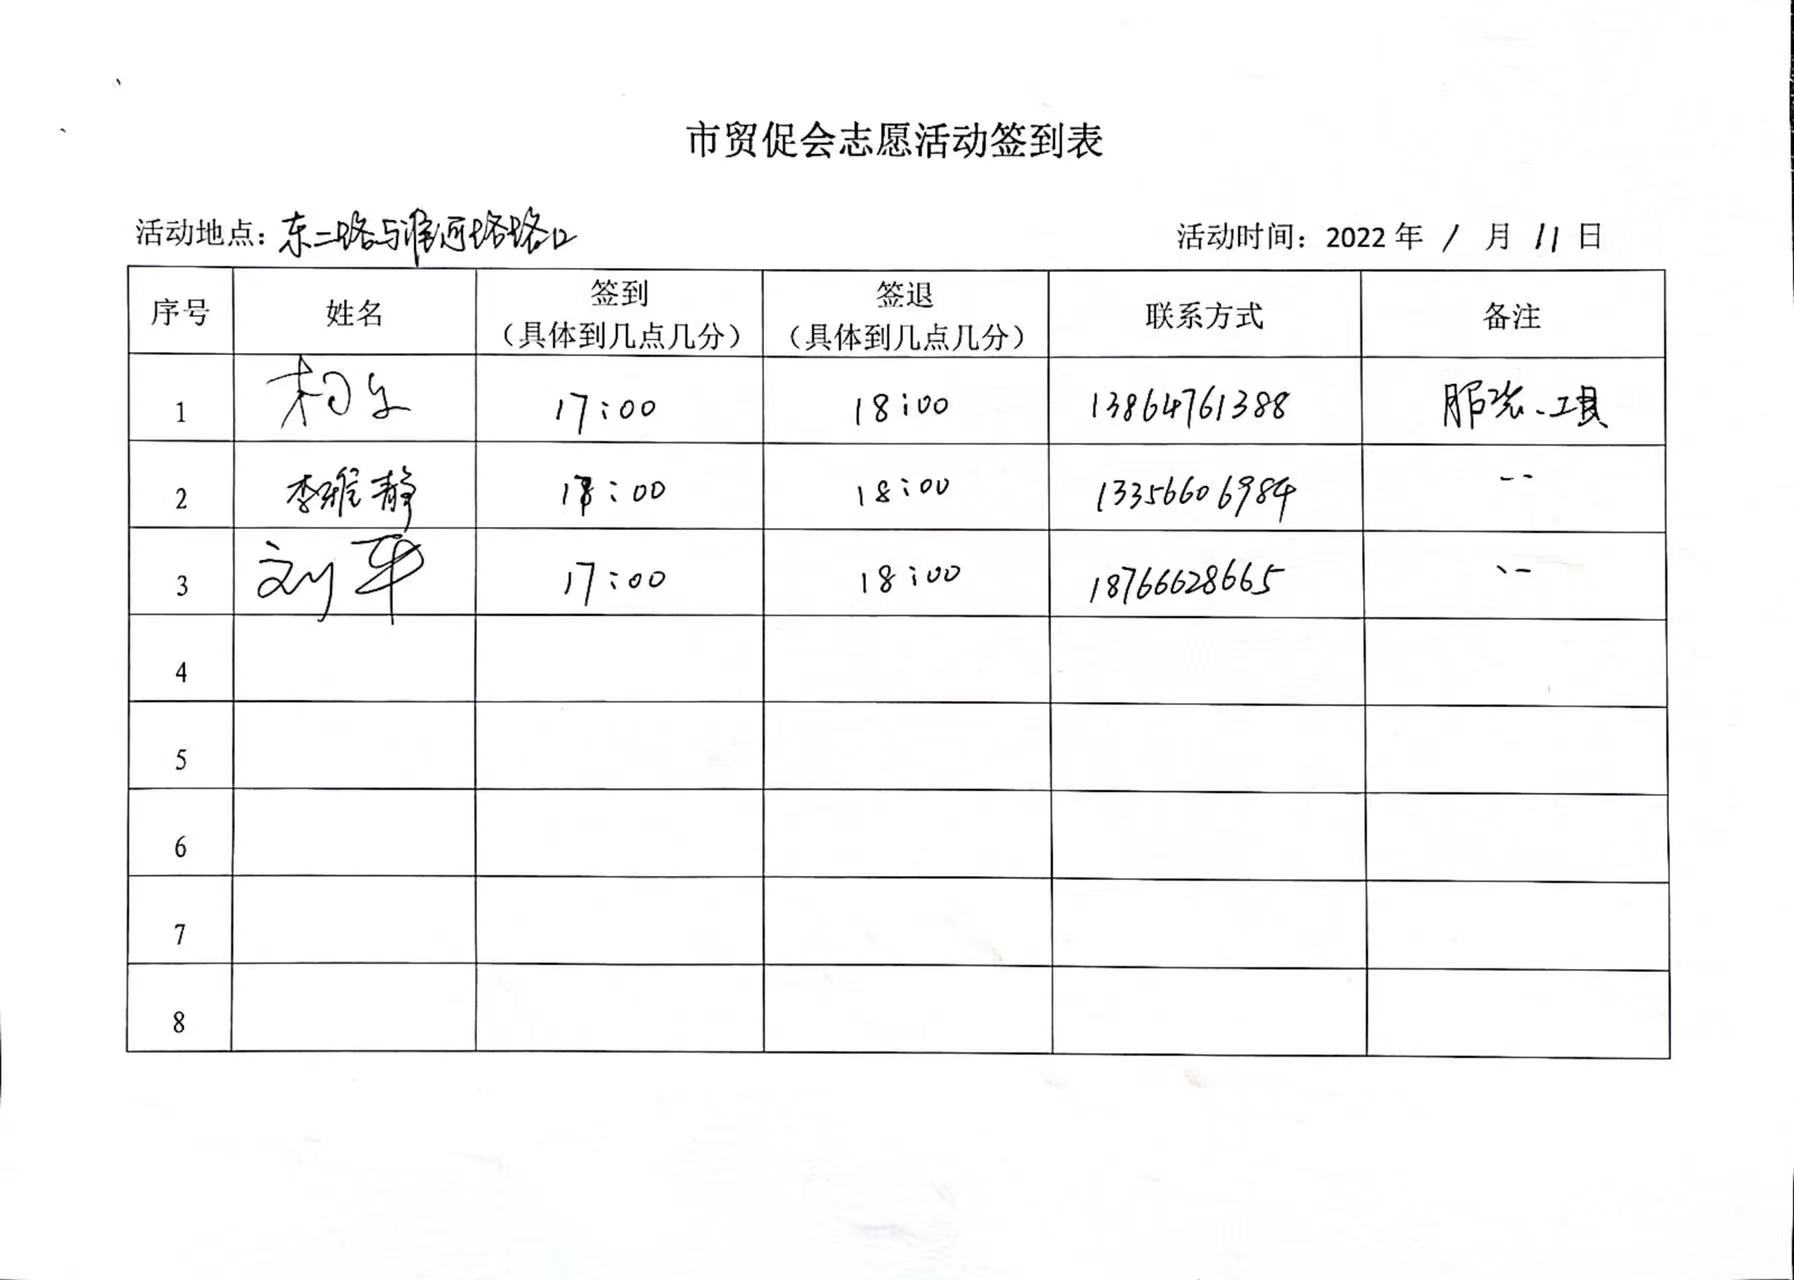 市贸促会志愿活动签到表
活动地点：东二路与淮河路路口 活动时间：2022年 1 月 11 日
序号 姓名 签到（具体到几点几分） 签退（具体到几点几分） 联系方式 备注
1 17:00 18:00 13864761388 服装、工具
2 李雅静 17:00 18:00 13356606984 --
3 刘平 17:00 18:00 18766628665 --
4
5
6
7
8